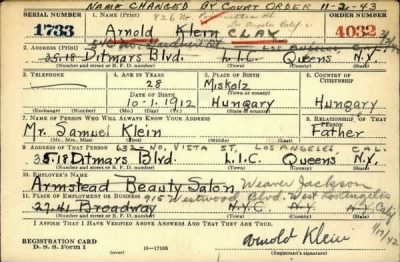 NAME CHANGED BY COURT ORDER 11-2-43
SERIAL NUMBER
1. NAME
ORDER NUMBER
1733
Arnold Klein CLAY
4032
2. ADDRESS (Print)
LOS ANGELES, CALIF.
35-18 Ditmars Blvd. L.I.C. Queens N.Y.
3. TELEPHONE
4. AGE IN YEARS
28
5. PLACE OF BIRTH
Miskolz
6. COUNTRY OF CITIZENSHIP
DATE OF BIRTH
10-1-1912
Hungary
Hungary
(Exchange) (Number)
(Mo.) (Day) (Yr.)
(State or country)
7. NAME OF PERSON WHO WILL ALWAYS KNOW YOUR ADDRESS
8. RELATIONSHIP OF THAT PERSON
Mr. Samuel Klein
Father
(Mr., Mrs., Miss) (First) (Middle) (Last)
9. ADDRESS OF THAT PERSON
632-NO. VISTA ST, LOS ANGELES, CAL.
35-18 Ditmars Blvd. L.I.C. Queens N.Y.
(Number and street or R. F. D. number) (Town) (County) (State)
10. EMPLOYER'S NAME
Armstead Beauty Salon Weaver Jackson
11. PLACE OF EMPLOYMENT OR BUSINESS
915 Westwood Blvd. West Los Angeles
27-41 Broadway N.Y.C. N.Y. N.Y. Cal.
(Number and street or R. F. D. number) (Town) (County) (State)
I AFFIRM THAT I HAVE VERIFIED ABOVE ANSWERS AND THAT THEY ARE TRUE.
REGISTRATION CARD
D. S. S. Form 1
16-17105
Arnold Klein
(Registrant's signature)